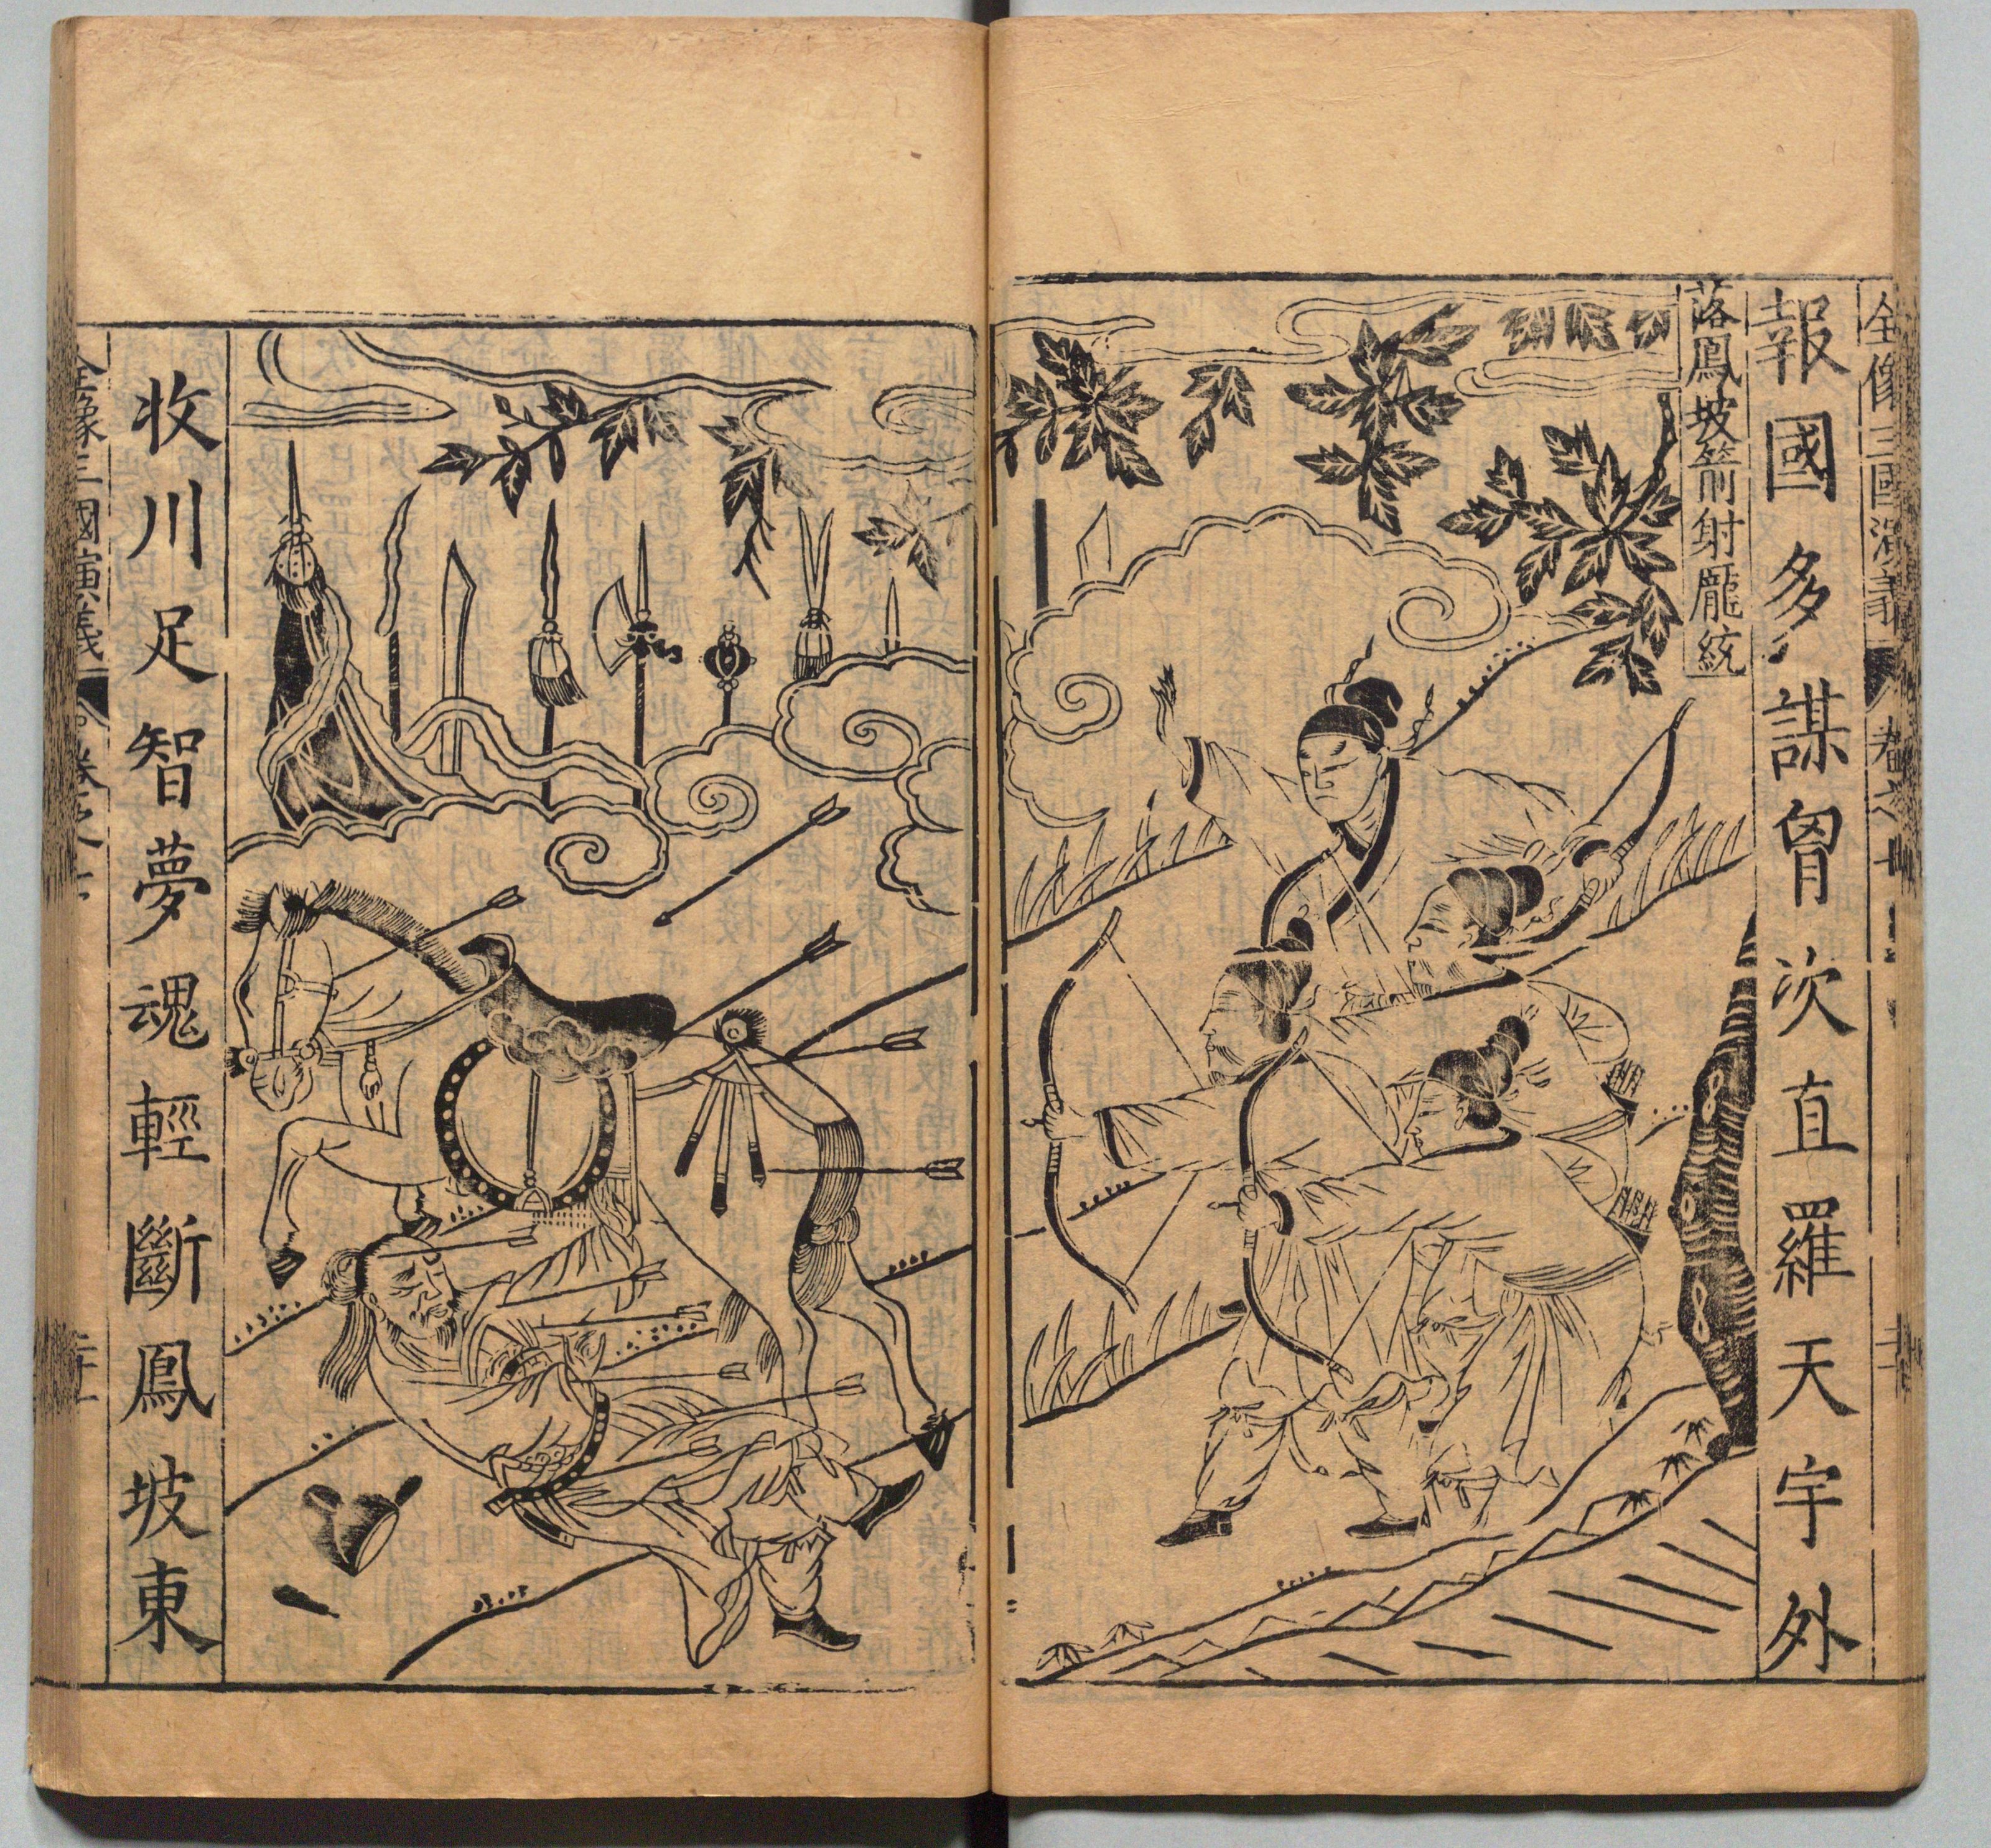 全像三國演義
報國多謀胷次直羅天宇外
落鳳坡箭射龐統
收川足智夢魂輕斷鳳坡東
全像三國演義